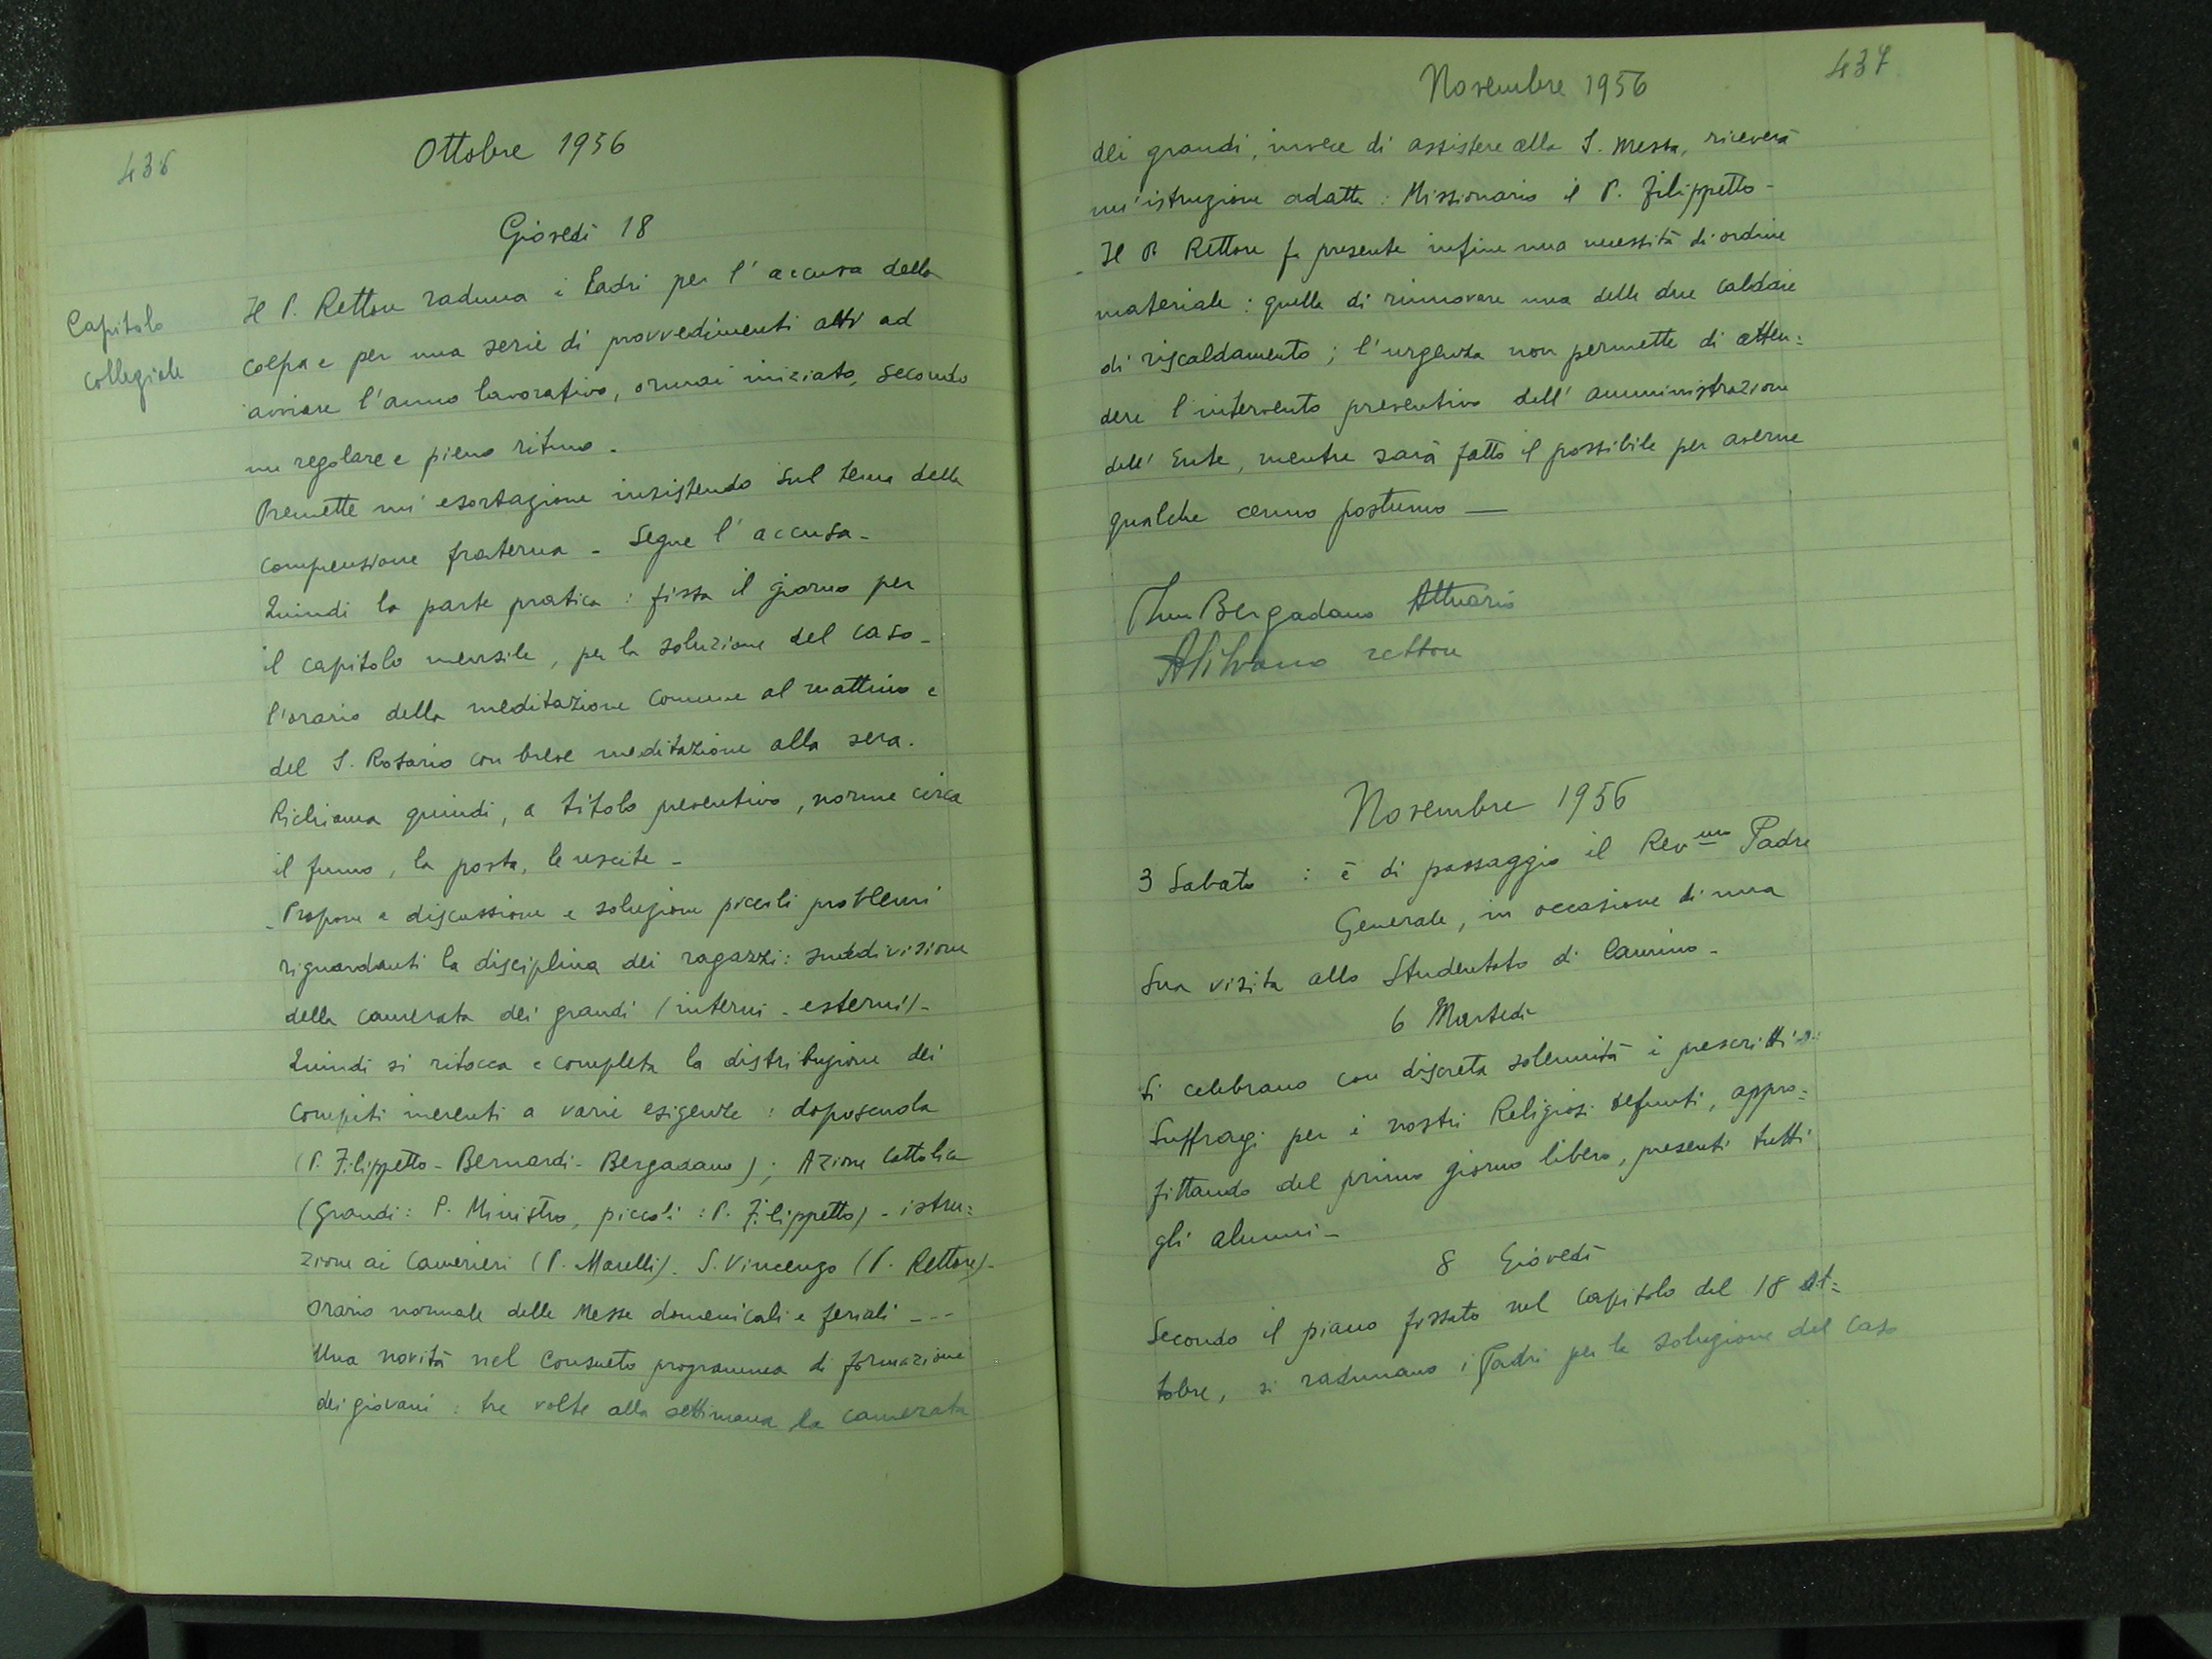 436
Ottobre 1956
Giovedì 18
Capitolo
collegiale
Il P. Rettore raduna i Padri per l'accusa della
colpa e per una serie di provvedimenti atti ad
avviare l'anno lavorativo, ormai iniziato, secondo
un regolare e pieno ritmo.
Premette un'esortazione insistendo sul tema della
comprensione fraterna - Segue l'accusa -
Quindi la parte pratica: fissa il giorno per
il capitolo mensile, per la soluzione del caso -
l'orario della meditazione comune al mattino e
del S. Rosario con breve meditazione alla sera.
Richiama quindi, a titolo preventivo, norme circa
il fumo, la posta, le uscite -
- Propone a discussione e soluzione piccoli problemi
riguardanti la disciplina dei ragazzi: suddivisione
della camerata dei grandi (interni - esterni) -
Quindi si ritocca e completa la distribuzione dei
compiti inerenti a varie esigenze: doposcuola
(P. Filippetto - Bernardi - Bergadano); Azione Cattolica
(Grandi: P. Ministro, piccoli: P. Filippetto) - istru=
zione ai Camerieri (P. Marelli). S. Vincenzo (P. Rettore) -
orario normale delle Messe domenicali e feriali ---
Una novità nel consueto programma di formazione
dei giovani: tre volte alla settimana la camerata
Novembre 1956
437.
dei grandi, invece di assistere alla S. Messa, riceverà
un'istruzione adatta: Missionario il P. Filippetto -
- Il P. Rettore fa presente infine una necessità di ordine
materiale: quella di rinnovare una delle due caldaie
di riscaldamento; l'urgenza non permette di atten=
dere l'intervento preventivo dell'amministrazione
dell'Ente, mentre sarà fatto il possibile per averne
qualche cenno postumo —
Bergadano Attuario
rettore
Novembre 1956
3 Sabato : è di passaggio il Rev.mo Padre
Generale, in occasione di una
Sua visita allo Studentato di Camino -
6 Martedì
Si celebrano con discreta solennità i prescritti
Suffragi per i nostri Religiosi defunti, appro=
fittando del primo giorno libero, presenti tutti
gli alunni -
8 Giovedì
Secondo il piano fissato nel Capitolo del 18 ot=
tobre, si radunano i Padri per la soluzione del caso